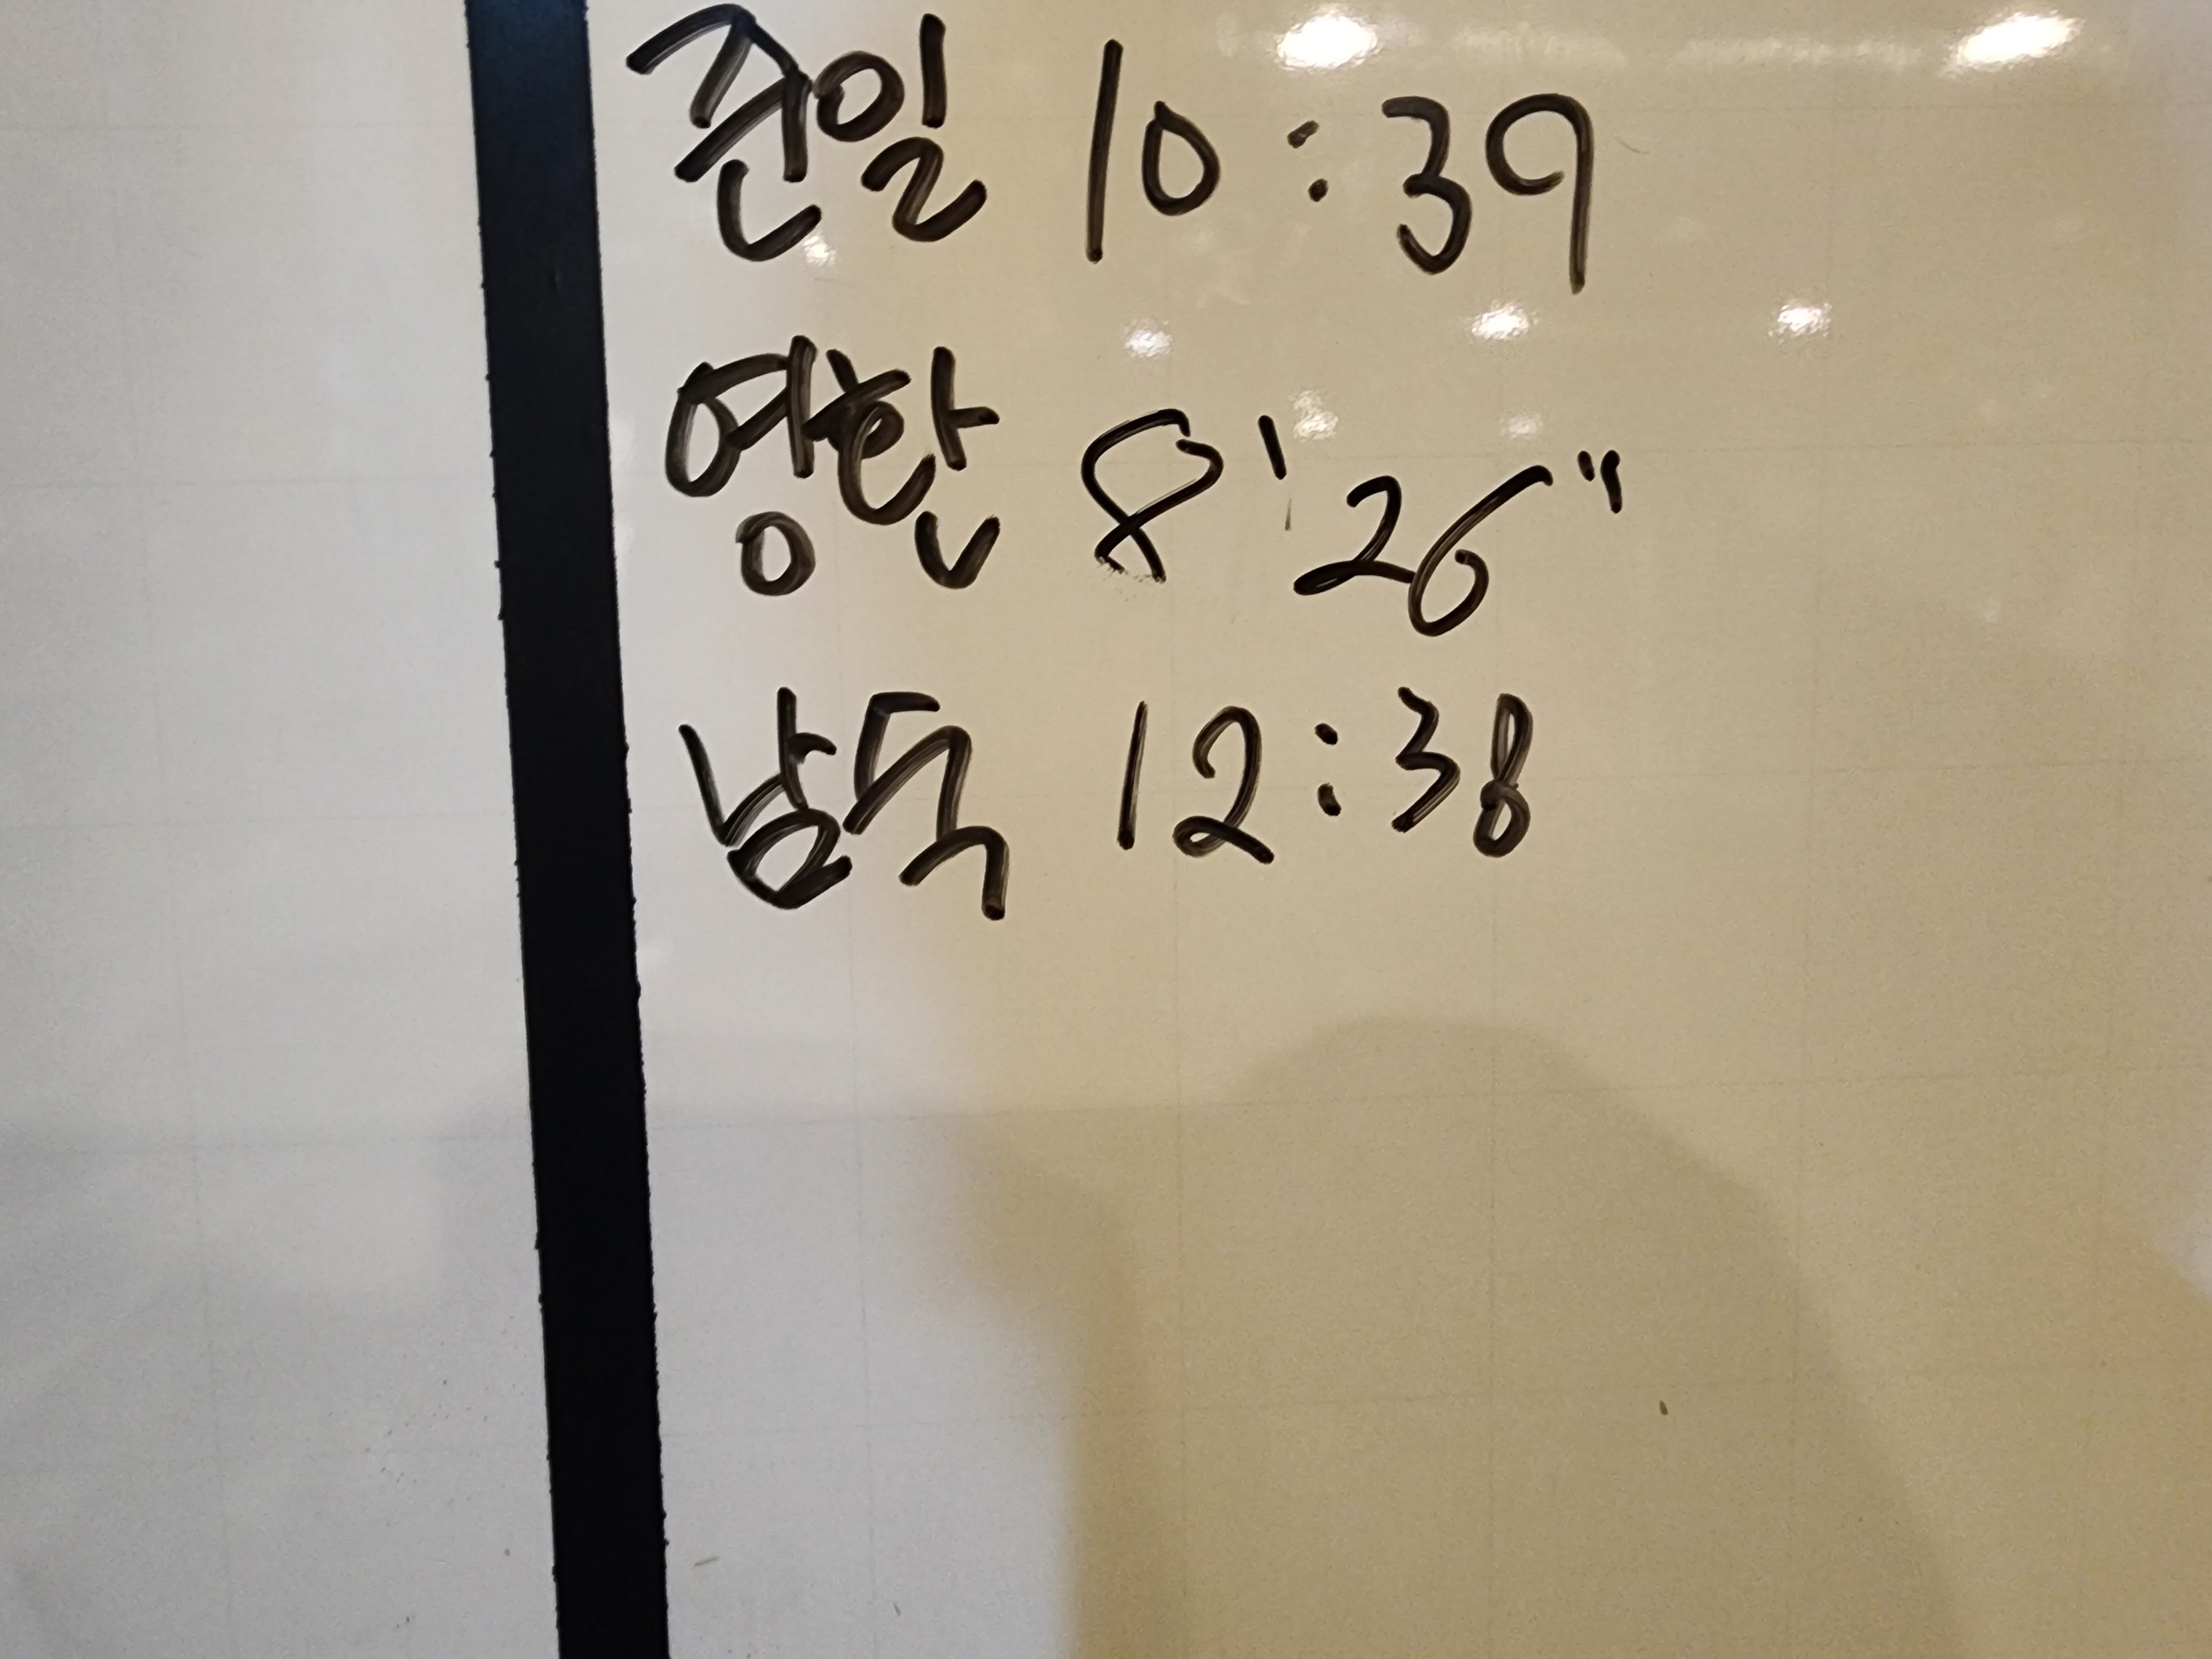 준일 10:39
영환 8'26"
남독 12:38